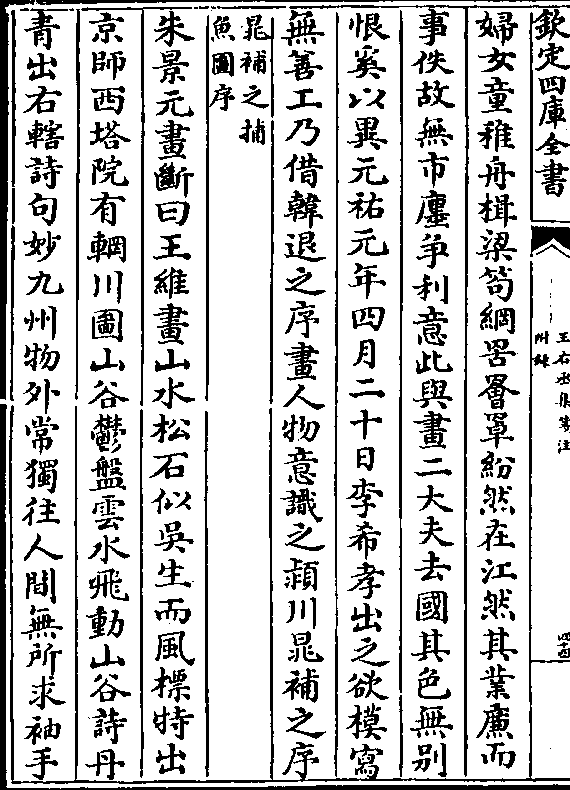 欽定四庫全書
王右丞集箋注
附録
四十四
婦女童稚舟楫梁笱網罟罾罩紛然在江然其業廉而
事佚故無市廛争利意此與畫二大夫去國其色無别
恨奚以異元祐元年四月二十日李希孝出之欲模寫
無善工乃借韓退之序畫人物意識之潁川晁補之序
晁補之捕
魚圖序
朱景元畫斷曰王維畫山水松石似吳生而風標特出
京師西塔院有輞川圖山谷鬱盤雲水飛動山谷詩丹
青出右轄詩句妙九州物外常獨往人間無所求袖手